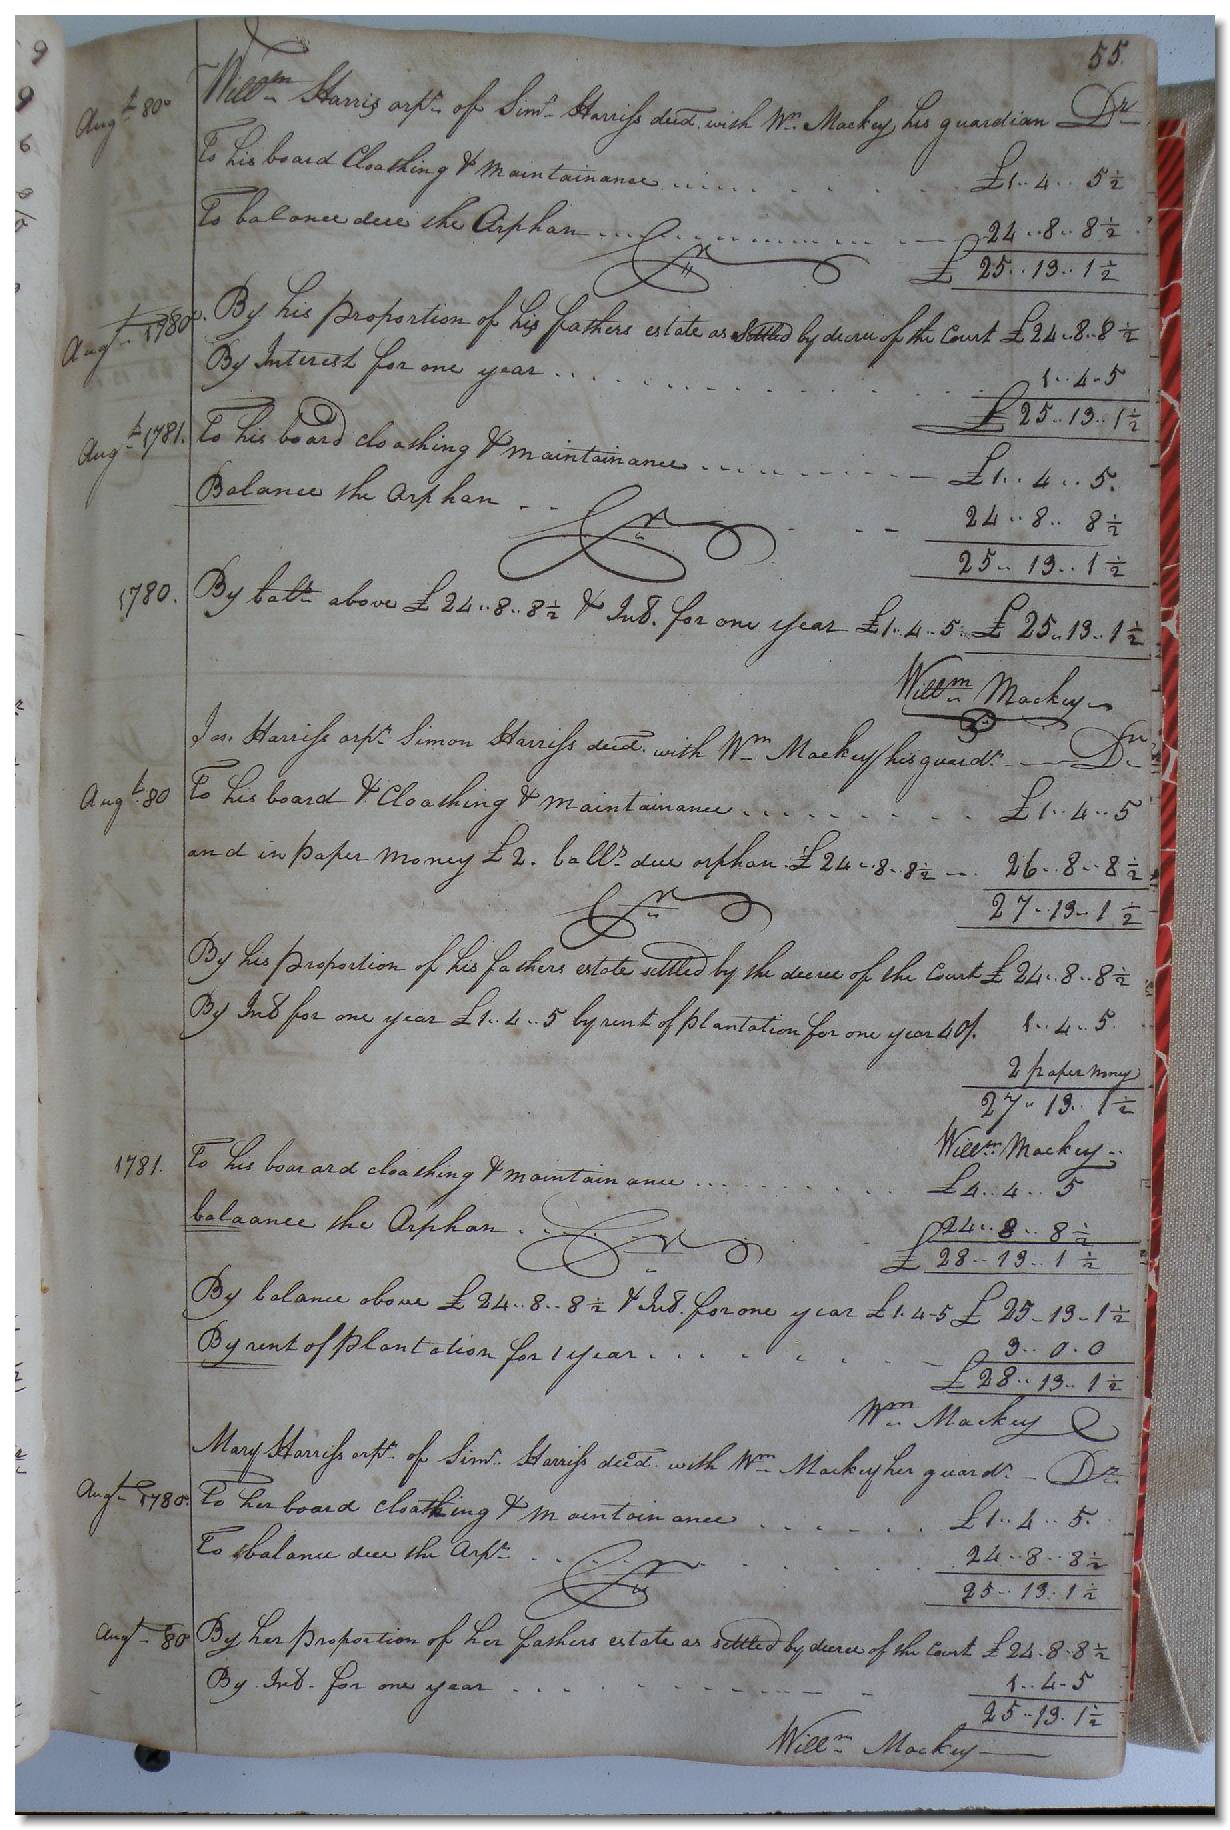 55.
Augt. 80. Willm Harris orpn. of Simn. Harriss decd. with Wm. Mackey his guardian Dr
To his board Cloathing & maintainance £1..4..5½
To balance due the Orphan 24..8..8½
Cr £25..13..1½
Augt. 1780. By his proportion of his fathers estate as Settled by decree of the Court £24..8..8½
By Interest for one year 1..4..5
£25..13..1½
Augt. 1781. To his board cloathing & maintainance £1..4..5.
Balance the Orphan 24..8..8½
Cr 25..13..1½
1780. By ballc. above £24..8..8½ & Int. for one year £1..4..5. £25..13..1½
Willm Mackey
Jas. Harriss orpn. Simon Harriss decd. with Wm Mackey his guardn. Dr
Augt. 80 To his board & Cloathing & maintainance £1..4..5
and in paper money £2. ballc. due orphan £24..8..8½ 26..8..8½
Cr 27..13..1½
By his proportion of his fathers estate settled by the decree of the Court £24..8..8½
By Int for one year £1..4..5 by rent of plantation for one year 40/. 1..4..5.
2 paper money
27..13..1½
Willm Mackey
1781. To his boarard cloathing & maintainance £4..4..5
balaance the Orphan 24..8..8½
Cr £28..13..1½
By balance above £24..8..8½ & Int. for one year £1.4-5 £25-13-1½
By rent of plantation for 1 year 3..0.0
£28..13..1½
Wm Mackey
Mary Harriss orpn. of Simn. Harriss decd. with Wm Mackey her guardn. Dr
Augt. 1780. To her board cloathing & maintainance £1..4..5.
To balance due the Orpn. 24..8..8½
Cr 25..13..1½
Augt. 80 By her proportion of her fathers estate as settled by decree of the Court £24.8.8½
By Int. for one year 1..4-5
25..13.1½
Willm Mackey